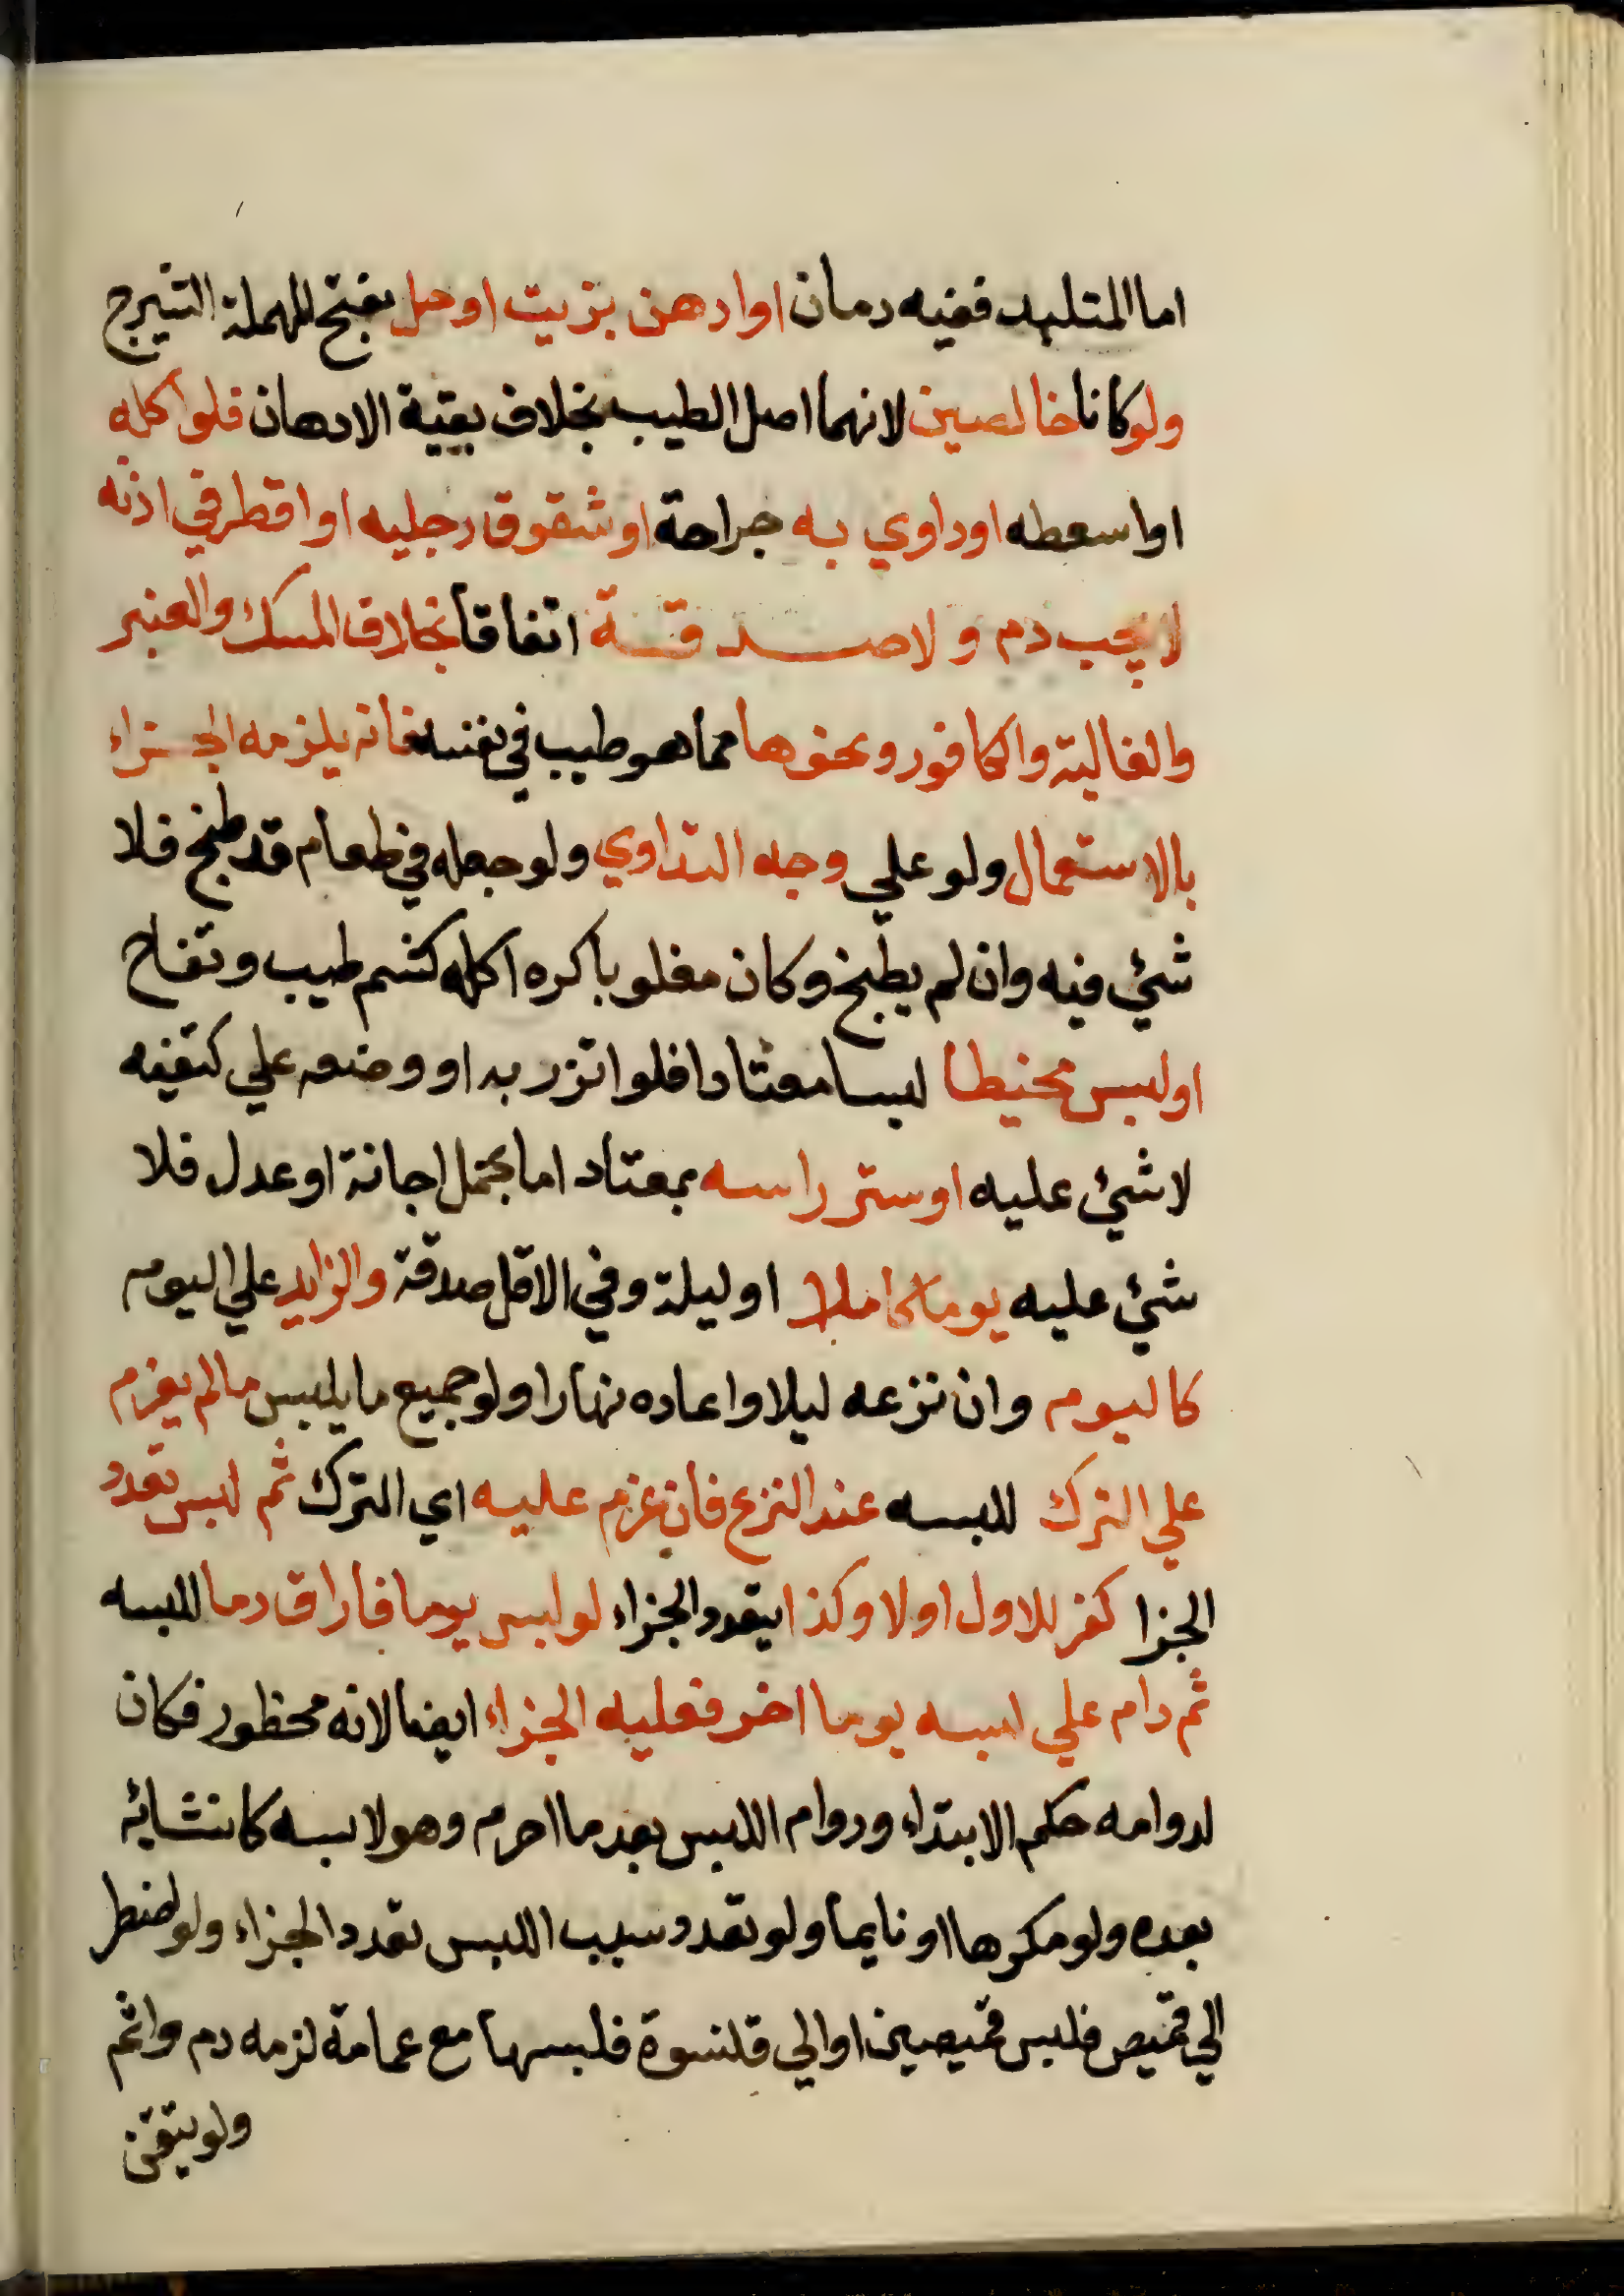 اما المتلبد ففيه دمان او ادهن بزيت او حل بفتح المهملة الشيرج
ولو كانا خالصين لانهما اصل الطيب بخلاف بقية الادهان فلو اكله
او اسعطه او داوي به جراحة او شقوق رجليه او اقطر في اذنه
لا يجب دم و لا صدقة اتفاقا بخلاف المسك والعنبر
والغالية والكافور ونحوها مما هو طيب في نفسه فانه يلزمه الجزاء
بالاستعمال ولو علي وجه التداوي ولو جعله في طعام قد طبخ فلا
شئ فيه وان لم يطبخ وكان مغلوبا كره اكله كشم طيب وتفاح
او لبس مخيطا لبسا معتادا فلو اتزر به او وضعه علي كتفيه
لا شئ عليه او ستر راسه بمعتاد اما بحمل اجانة او عدل فلا
شئ عليه يوما كاملا او ليلة وفي الاقل صدقة والزايد علي اليوم
كاليوم وان نزعه ليلا واعاده نهارا ولو جميع ما يلبس ما لم يعزم
علي الترك للبسه عند النزع فان عزم عليه اي الترك ثم لبس تعدد
الجزا كفر للاول اولا وكذا يتعدد الجزاء لو لبس يوما فاراق دما للبسه
ثم دام علي لبسه يوما اخر فعليه الجزاء ايضا لانه محظور فكان
لدوامه حكم الابتداء ودوام اللبس بعد ما احرم وهو لابسه كانشائه
بعده ولو مكرها او نايما ولو تعدد سبب اللبس تعدد الجزاء ولو اضطر
الي قميص فلبس قميصين او الي قلنسوة فلبسها مع عمامة لزمه دم واثم
ولو تيقن